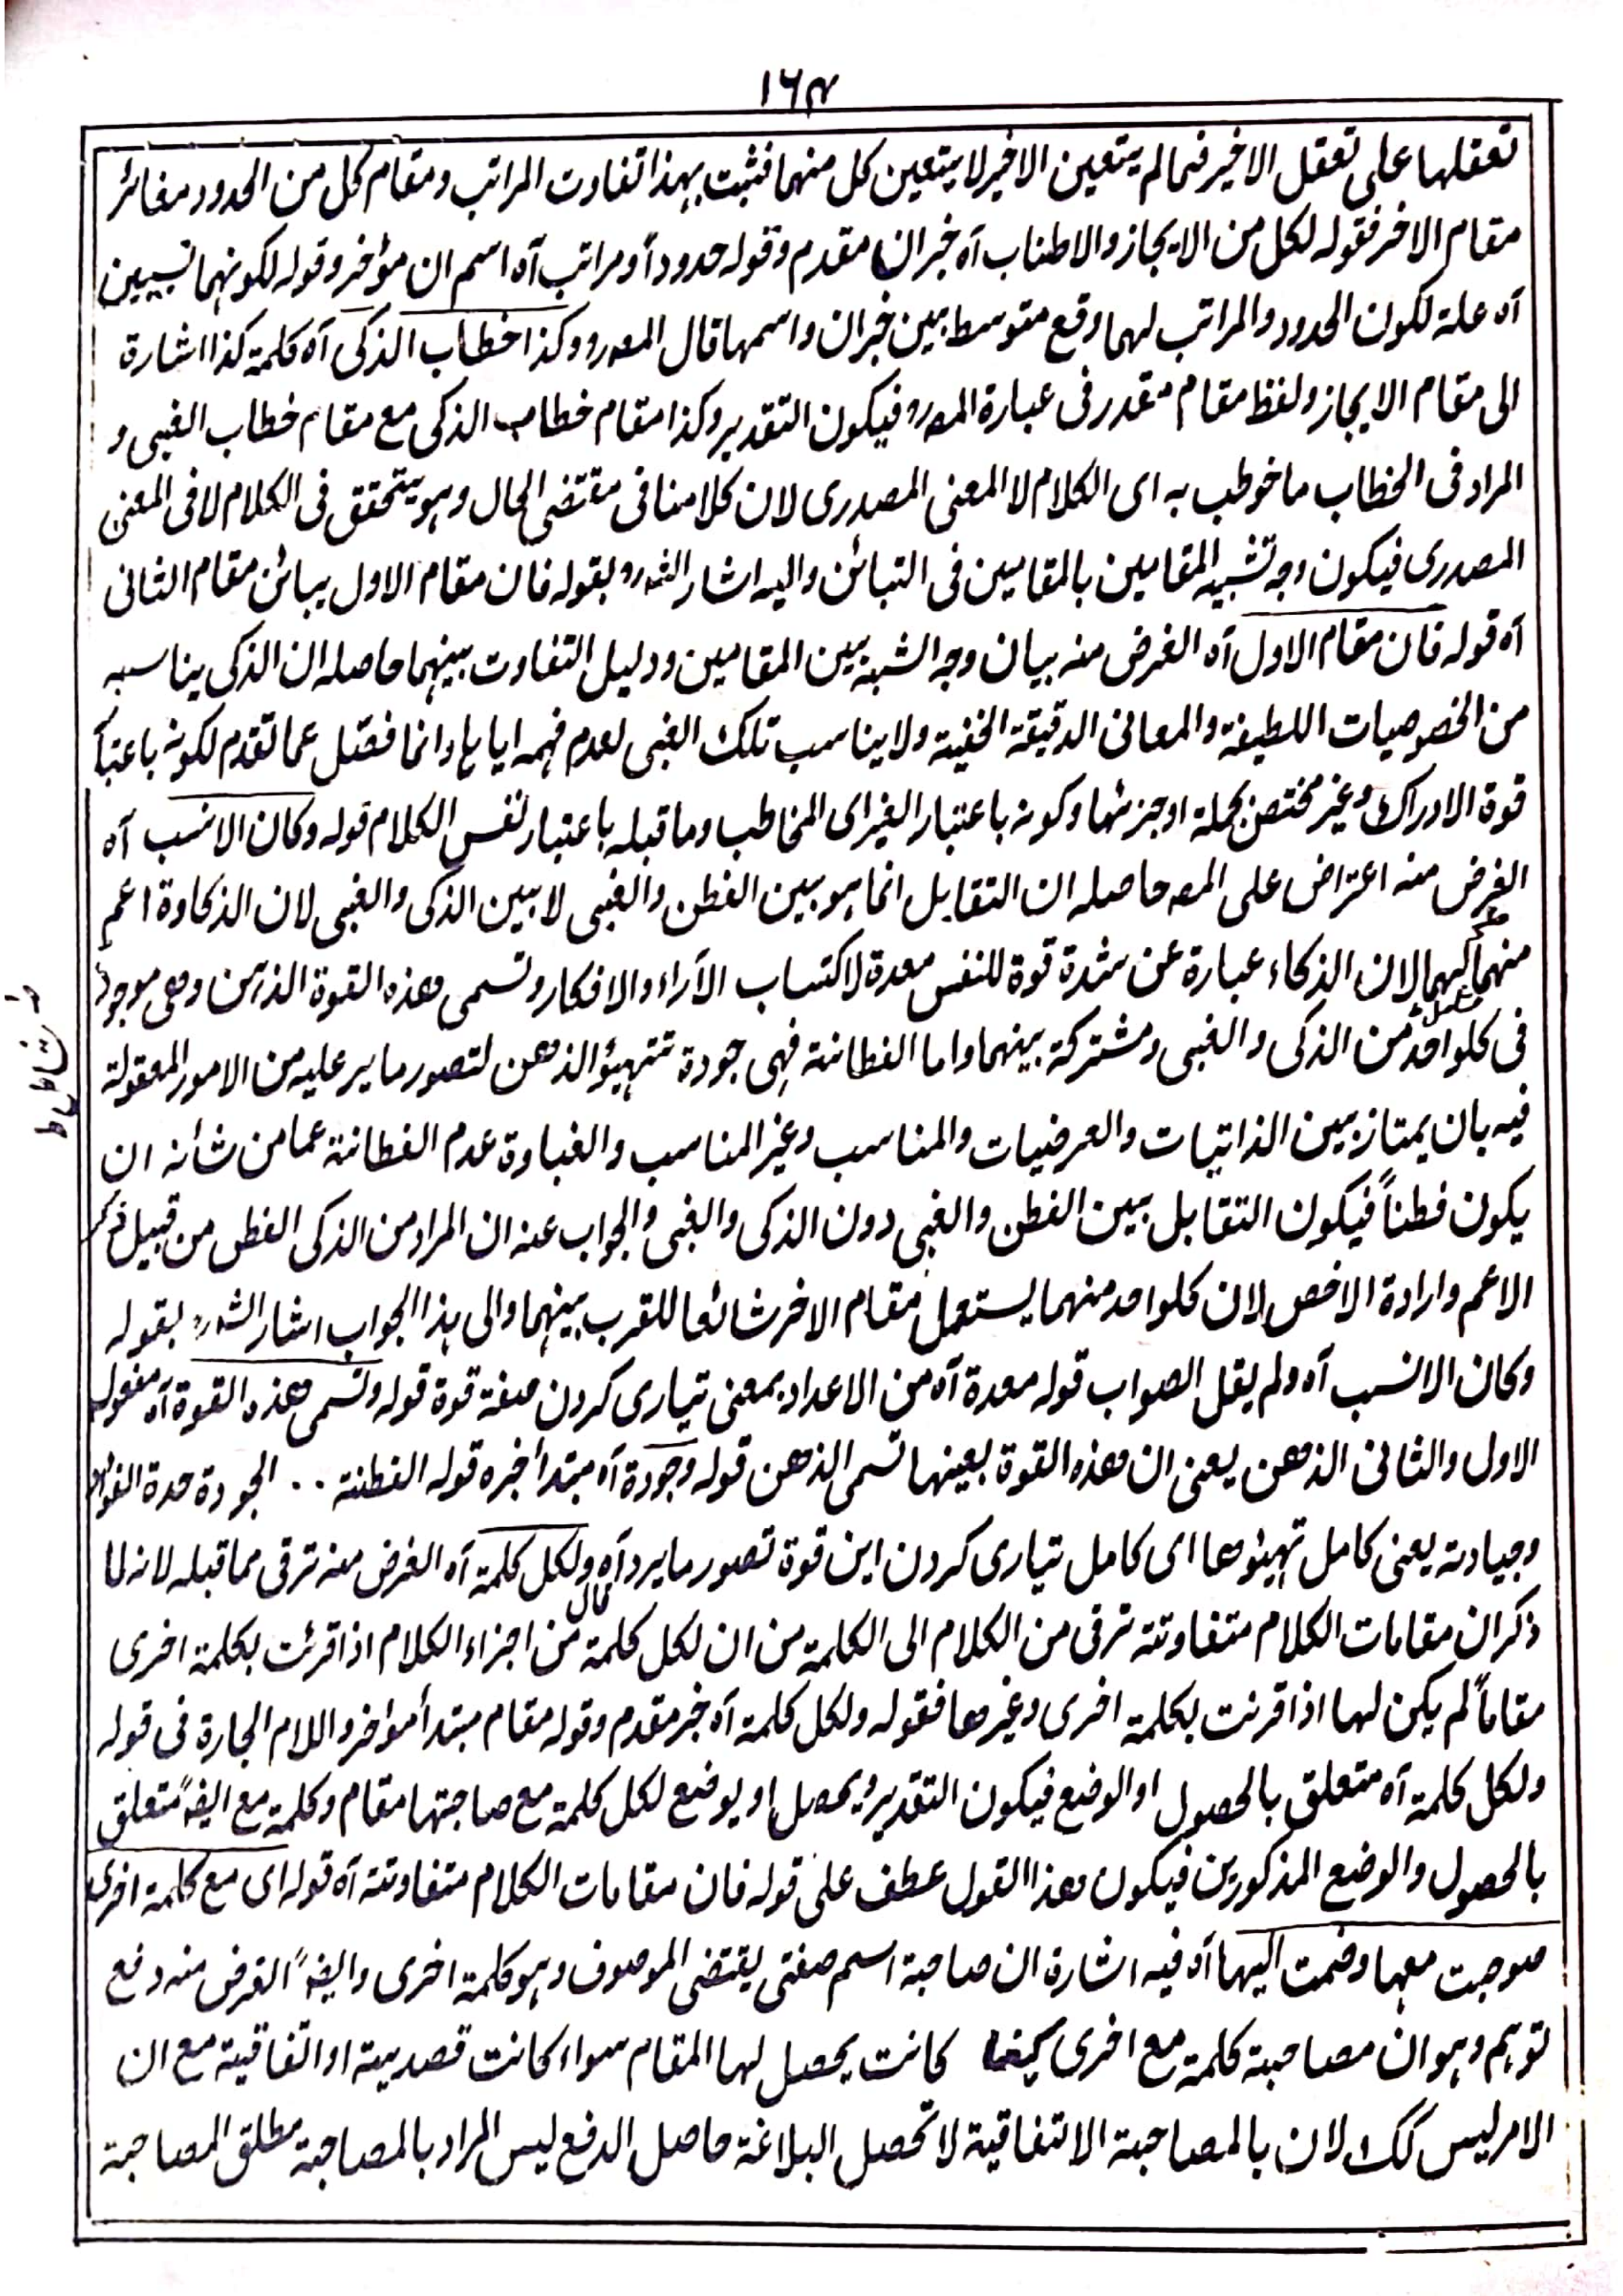 ١٦٤
تعقلها على تعقل الاخير فمالم يتعين الاخير لا يتعين كل منهما فثبت بهذا تفاوت المراتب ومقام كل من الحدود مغائر
مقام الاخر فقوله لكل من الايجاز والاطناب آه خبر ان مقدم وقوله حدوداً ومراتب آه اسم ان مؤخر وقوله لكونهما نسبيين
آه علة لكون الحدود والمراتب لهما وقع متوسط بين خبران واسمها قال المصرو وكذا خطاب الذكى آه كلمة كذا اشارة
الى مقام الايجاز ولفظ مقام مقدر فى عبارة المصرو فيكون التقدير وكذا مقام خطاب الذكى مع مقام خطاب الغبى و
المراد فى الخطاب ما خوطب به اى الكلام لا المعنى المصدرى لان كلامنا فى مقتضى الحال وهو يتحقق فى الكلام لا فى المعنى
المصدرى فيكون وجه تشبيه المقامين بالمقامين فى التبائن واليه اشار الشرو بقوله فان مقام الاول يبائن مقام الثانى
آه قوله فان مقام الاول آه الغرض منه بيان وجه الشبه بين المقامين ودليل التفاوت بينهما حاصله ان الذكى يناسبه
من الخصوصيات اللطيفة والمعانى الدقيقة الخفية ولا يناسب تلك الغبى لعدم فهمه اياها وانما فصّل عما تقدم لكونه باعتبا
قوة الادراك وغير مختص بجملة او جزئها وكونه باعتبار الغير اى المخاطب وما قبله باعتبار نفس الكلام قوله وكان الانسب آه
الغرض منه اعتراض على المصر حاصله ان التقابل انما هو بين الفطن والغبى لا بين الذكى والغبى لان الذكاوة اعم
منهما لان الذكاء عبارة عن شدة قوة للنفس معدة لاكتساب الآراء والافكار وتسمى هذه القوة الذهن وهى موجود
فى كلواحد من الذكى والغبى ومشتركة بينهما واما الفطانة فهى جودة تتهيؤ الذهن لتصور ما يرد عليه من الامور المعقولة
فيه بان يمتاز بين الذاتيات والعرضيات والمناسب وغير المناسب والغباوة عدم الفطانة عما من شأنه ان
يكون فطناً فيكون التقابل بين الفطن والغبى دون الذكى والغبى والجواب عنه ان المراد من الذكى الفطن من قبيل ذكر
الاعم وارادة الاخص لان كلواحد منهما يستعمل مقام الاخر شائعا للقرب بينهما والى هذا الجواب اشار الشرو بقوله
وكان الانسب آه ولم يقل الصواب قوله معدة آه من الاعداد بمعنى تيارى كردن صفة قوة قوله وتسمى هذه القوة آه مفعول
الاول والثانى الذهن يعنى ان هذه القوة بعينها تسمى الذهن قوله وجودة آه مبتدأ خبره قوله الفطنة .. الجودة حدة الفواد
وجيادته يعنى كامل تهيئوها اى كامل تيارى كردن اين قوة تصور ما يرد آه قال ولكل كلمة آه الغرض منه ترقى مما قبله لانه لما
ذكر ان مقامات الكلام متفاوتة ترقى من الكلام الى الكلمة من ان لكل كلمة من اجزاء الكلام اذا قرئت بكلمة اخرى
مقاماً لم يكن لها اذا قرنت بكلمة اخرى وغيرها فقوله ولكل كلمة آه خبر مقدم وقوله مقام مبتدأ مؤاخر واللام الجارة فى قوله
ولكل كلمة آه متعلق بالحصول او الوضع فيكون التقدير ويحصل او يوضع لكل كلمة مع صاحبتها مقام وكلمة مع ايضًا متعلق
بالحصول والوضع المذكورين فيكون هذا القول عطف على قوله فان مقامات الكلام متفاوتة آه قوله اى مع كلمة اخرى
صوحبت معها وضمت اليها آه فيه اشارة ان صاحبة اسم صفتى يقتضى الموصوف وهو كلمة اخرى وايضًا الغرض منه دفع
توهم وهو ان مصاحبة كلمة مع اخرى كيفما كانت يحصل لها المقام سواء كانت قصدية او اتفاقية مع ان
الامر ليس كك لان بالمصاحبة الاتفاقية لا تحصل البلاغة حاصل الدفع ليس المراد بالمصاحبة مطلق المصاحبة